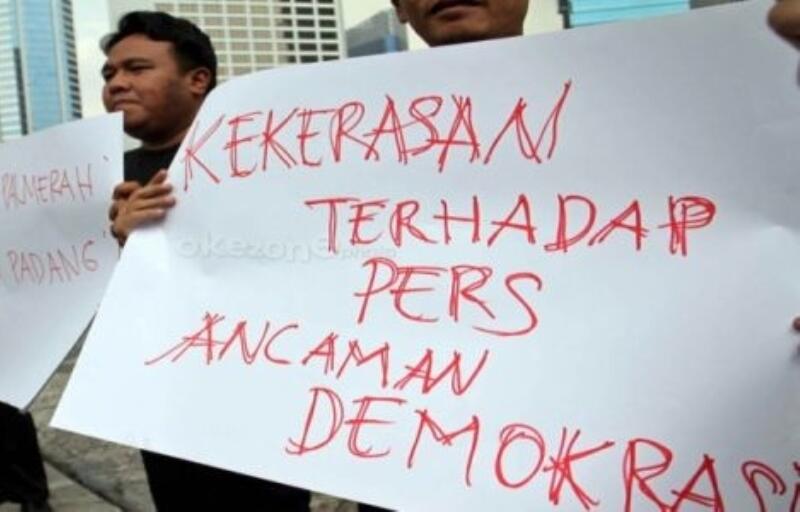 PALMERAH
PADANG
KEKERASAN
TERHADAP
okezone
PERS
ANCAMAN
DEMOKRASI